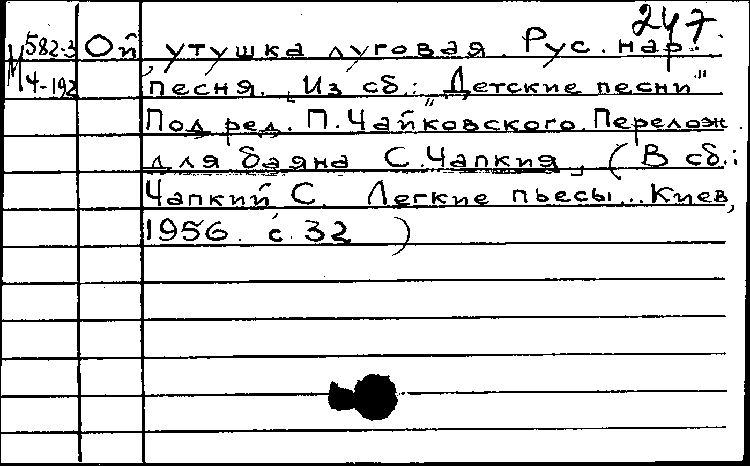 247.
М 582-3 Ой, утушка луговая. Рус. нар.
4-192 песня. [Из сб.: "Детские песни"
Под ред. П. Чайковского. Перелож.
для баяна С. Чапкия] (В сб.:
Чапкий С. Легкие пьесы... Киев,
1956. с. 32)